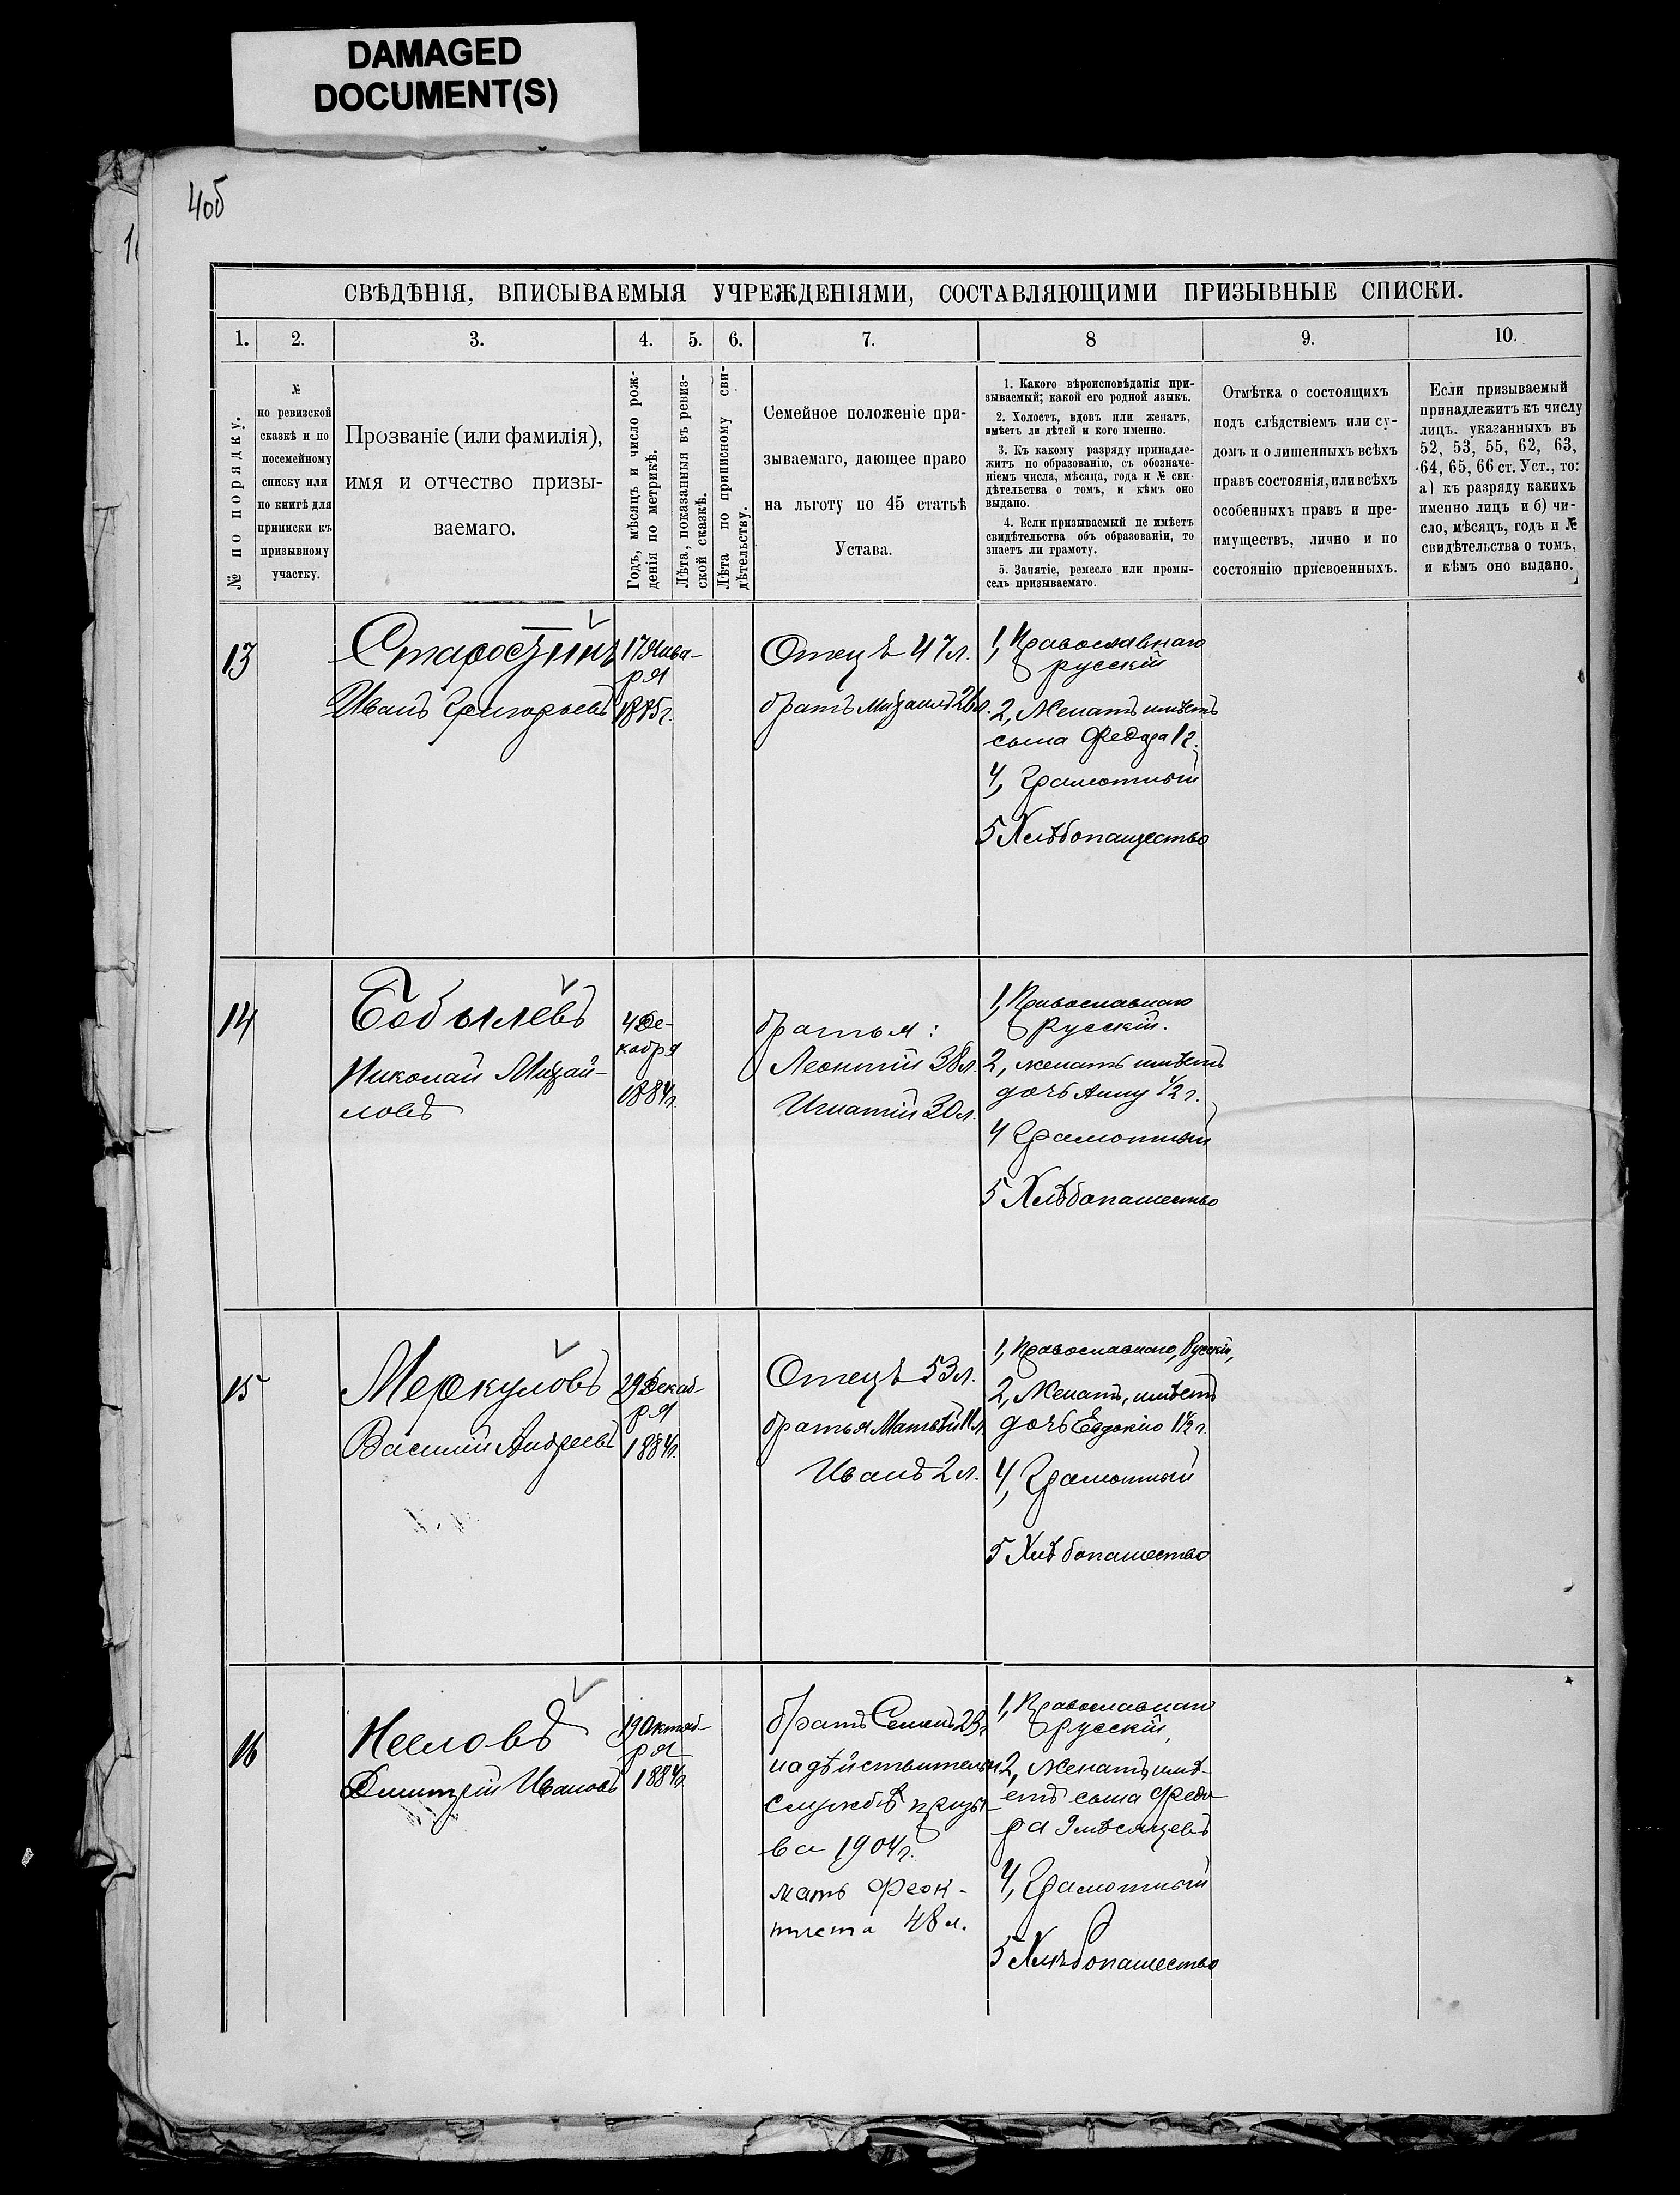 DAMAGED
DOCUMENT(S)
4об
СВѢДѢНІЯ, ВПИСЫВАЕМЫЯ УЧРЕЖДЕНІЯМИ, СОСТАВЛЯЮЩИМИ ПРИЗЫВНЫЕ СПИСКИ.
1. 2. 3. 4. 5. 6. 7. 8 9. 10.
№ по порядку.
№
по ревизской
сказкѣ и по
посемейному
списку или
по книгѣ для
приписки къ
призывному
участку.
Прозваніе (или фамилія),
имя и отчество призы-
ваемаго.
Годъ, мѣсяцъ и число рож-
денія по метрикѣ.
Лѣта, показанныя въ ревиз-
ской сказкѣ.
Лѣта по приписному сви-
дѣтельству.
Семейное положеніе при-
зываемаго, дающее право
на льготу по 45 статьѣ
Устава.
1. Какого вѣроисповѣданія при-
зываемый; какой его родной языкъ.
2. Холостъ, вдовъ или женатъ,
имѣетъ ли дѣтей и кого именно.
3. Къ какому разряду принадле-
житъ по образованію, съ обозначе-
ніемъ числа, мѣсяца, года и № сви-
дѣтельства о томъ, и кѣмъ оно
выдано.
4. Если призываемый не имѣетъ
свидѣтельства объ образованіи, то
знаетъ ли грамоту.
5. Занятіе, ремесло или промы-
селъ призываемаго.
Отмѣтка о состоящихъ
подъ слѣдствіемъ или су-
домъ и о лишенныхъ всѣхъ
правъ состоянія, или всѣхъ
особенныхъ правъ и пре-
имуществъ, лично и по
состоянію присвоенныхъ.
Если призываемый
принадлежитъ къ числу
лицъ, указанныхъ въ
52, 53, 55, 62, 63,
64, 65, 66 ст. Уст., то:
а) къ разряду какихъ
именно лицъ и б) чи-
сло, мѣсяцъ, годъ и №
свидѣтельства о томъ,
и кѣмъ оно выдано.
13
Иванъ Григорьевъ
17 Янва-
ря
Отецъ 47 л.
братъ Михаилъ 26 л.
1, Православнаго
русскій
2, Женатъ имѣетъ
сына Федора 1 г.
4, Грамотный
5 Хлѣбопашество
14
Бобылевъ
Николай Михай-
ловъ
4 Де-
кабря
1884 г.
братья:
Леонтій 38 л.
Игнатій 30 л.
1, Православнаго
Русскій.
2, женатъ имѣетъ
дочь Анну 1/2 г.
4 Грамотный
5 Хлѣбопашество
15
Меркуловъ
Василій Андреевъ
29 Декаб-
ря
1884 г.
Отецъ 53 л.
братья Матвѣй 11 л.
Иванъ 2 л.
1, Православнаго, Русскій,
2, Женатъ, имѣетъ
дочь Евдокію 1 1/2 г.
4, Грамотный
5 Хлѣбопашество
16
Нееловъ
Дмитрій Ивановъ
19 Октяб-
ря
1884 г.
братъ Семенъ 23 г.
на дѣйствительн
службѣ призы-
ва 1904 г.
мать Феок-
тиста 48 л.
1, Православнаго
русскій,
2, Женатъ имѣ-
етъ сына Федо-
ра 9 мѣсяцевъ
4, Грамотный
5 Хлѣбопашество